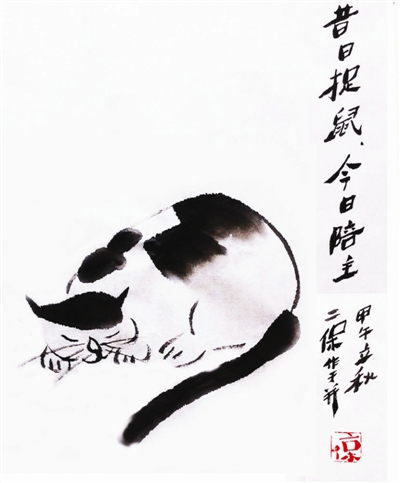 昔日捉鼠、今日陪主
甲午立秋
二保作于并